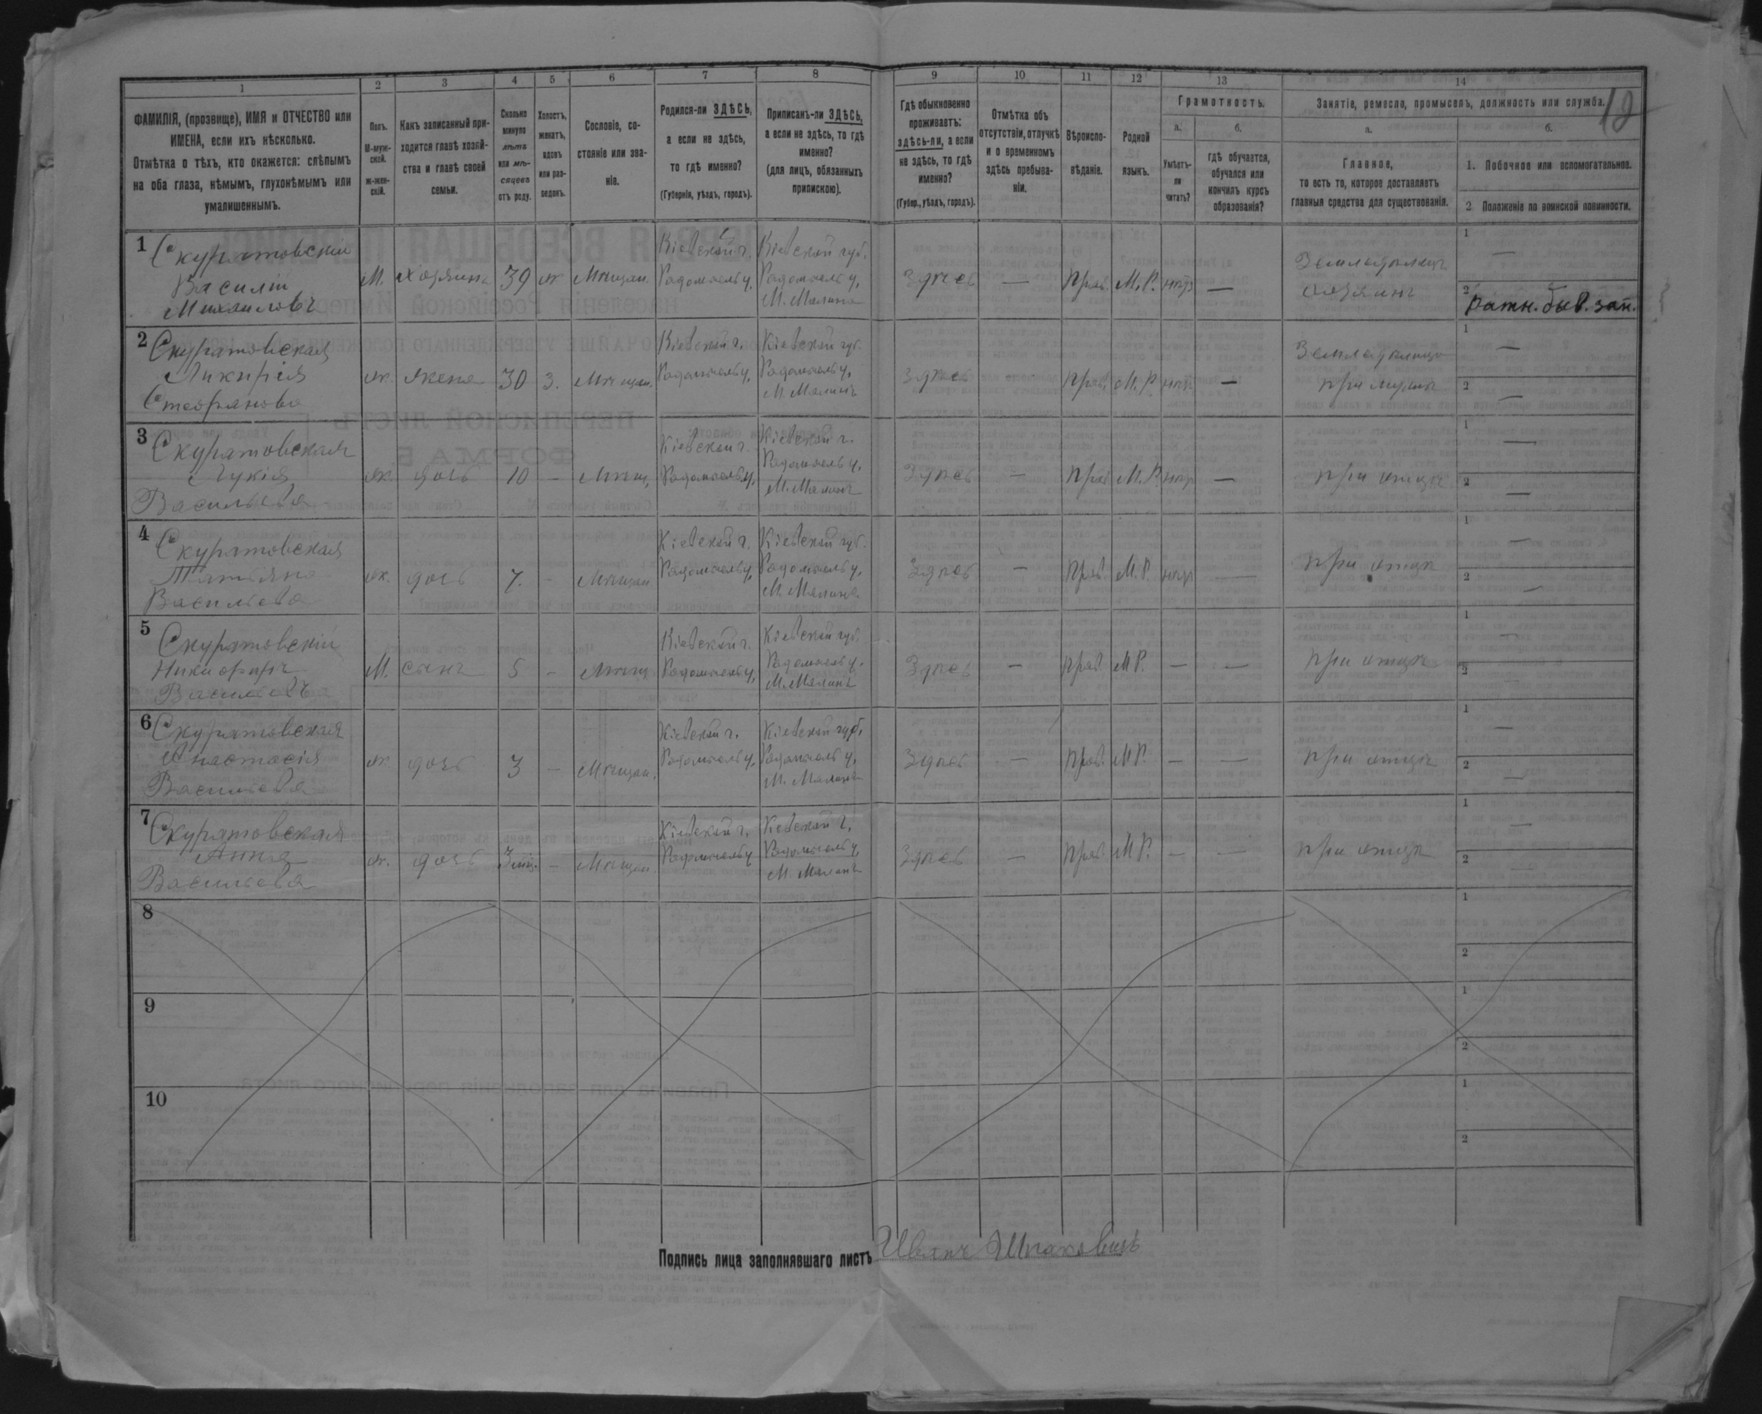 1 2 3 4 5 6 7 8 9 10 11 12 13 14
12
ФАМИЛІЯ, (прозвище), ИМЯ и ОТЧЕСТВО или
ИМЕНА, если ихъ нѣсколько.
Отмѣтка о тѣхъ, кто окажется: слѣпымъ
на оба глаза, нѣмымъ, глухонѣмымъ или
умалишеннымъ.
Полъ.
М-муж-
ской.
ж-жен-
скій.
Какъ записанный при-
ходится главѣ хозяй-
ства и главѣ своей
семьи.
Сколько
минуло
лѣтъ
или мѣ-
сяцевъ
отъ роду.
Холостъ,
женатъ,
вдовъ
или раз-
веденъ.
Сословіе, со-
стояніе или зва-
ніе.
Родился-ли ЗДѢСЬ,
а если не здѣсь,
то гдѣ именно?
(Губернія, уѣздъ, городъ).
Приписанъ-ли ЗДѢСЬ,
а если не здѣсь, то гдѣ
именно?
(для лицъ, обязанныхъ
припискою).
Гдѣ обыкновенно
проживаетъ:
здѣсь-ли, а если
не здѣсь, то гдѣ
именно?
(Губер., уѣздъ, городъ).
Отмѣтка объ
отсутствіи, отлучкѣ
и о временномъ
здѣсь пребыва-
ніи.
Вѣроиспо-
вѣданіе.
Родной
языкъ.
Грамотность.
а.
Умѣетъ-
ли
читать?
б.
гдѣ обучается,
обучался или
кончилъ курсъ
образованія?
Занятіе, ремесло, промыселъ, должность или служба.
а.
Главное,
то есть то, которое доставляетъ
главныя средства для существованія.
б.
1. Побочное или вспомогательное.
2 Положеніе по воинской повинности.
1 Скуратовскій
Василій
Михаиловъ
М. хозяинъ 39 ж Мѣщан.
Кіевской г.
Радомысль у.
Кіевской губ.
Радомысль у.
М. Малинъ
Здѣсь — Прав. М.Р. нѣтъ —
Земледѣлецъ
хозяинъ
1 —
2 Ратн. быв. зап.
2 Скуратовская
Ликирія
Стефанова
ж. жена 30 З. Мѣщан.
Кіевской г.
Радомысль у.
Кіевской губ.
Радомысль у.
М. Малинъ
Здѣсь — Прав. М.Р. нѣтъ —
при мужѣ
1 —
2 —
3 Скуратовская
Лукія
Васильева
ж. дочь 10 – Мѣщ.
Кіевской г.
Радомысль у.
Кіевской г.
Радомысль у.
М. Малинъ
Здѣсь — Прав. М.Р. нѣтъ —
при отцѣ
1 —
2 —
4 Скуратовская
Татьяна
Васильева
ж. дочь 7. – Мѣщан
Кіевской г.
Радомысль у.
Кіевской губ.
Радомысль у.
М. Малинъ
Здѣсь — Прав. М.Р. нѣтъ —
при отцѣ
1 —
2 —
5 Скуратовскій
Никифоръ
Васильевъ
М. сынъ 5 – Мѣщ
Кіевской г.
Радомысль у.
Кіевской губ.
Радомысль у.
М. Малинъ
Здѣсь — Прав. М.Р. — —
при отцѣ
1 —
2 —
6 Скуратовская
Анастасія
Васильева
ж. дочь 3 – Мѣщан.
Кіевской г.
Радомысль у.
Кіевской губ.
Радомысль у.
М. Малинъ
Здѣсь — Прав. М.Р. — —
при отцѣ
1 —
2 —
7 Скуратовская
Анна
Васильева
ж. дочь – Мѣщан
Кіевской г.
Радомысль у
Кіевской г.
Радомысль у.
М. Малинъ
Здѣсь — Прав. М.Р. — —
при отцѣ
1 —
2 —
8
1
2
9
1
2
10
1
2
Подпись лица заполнявшаго листъ Иванъ